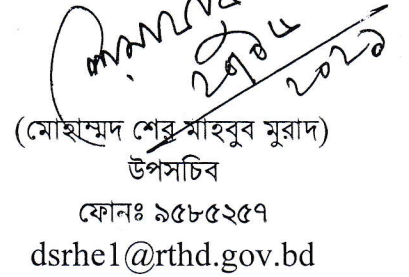 ২০২১
(মোহাম্মদ শের মাহবুব মুরাদ)
উপসচিব
ফোনঃ ৯৫৮৫২৫৭
dsrhe1@rthd.gov.bd